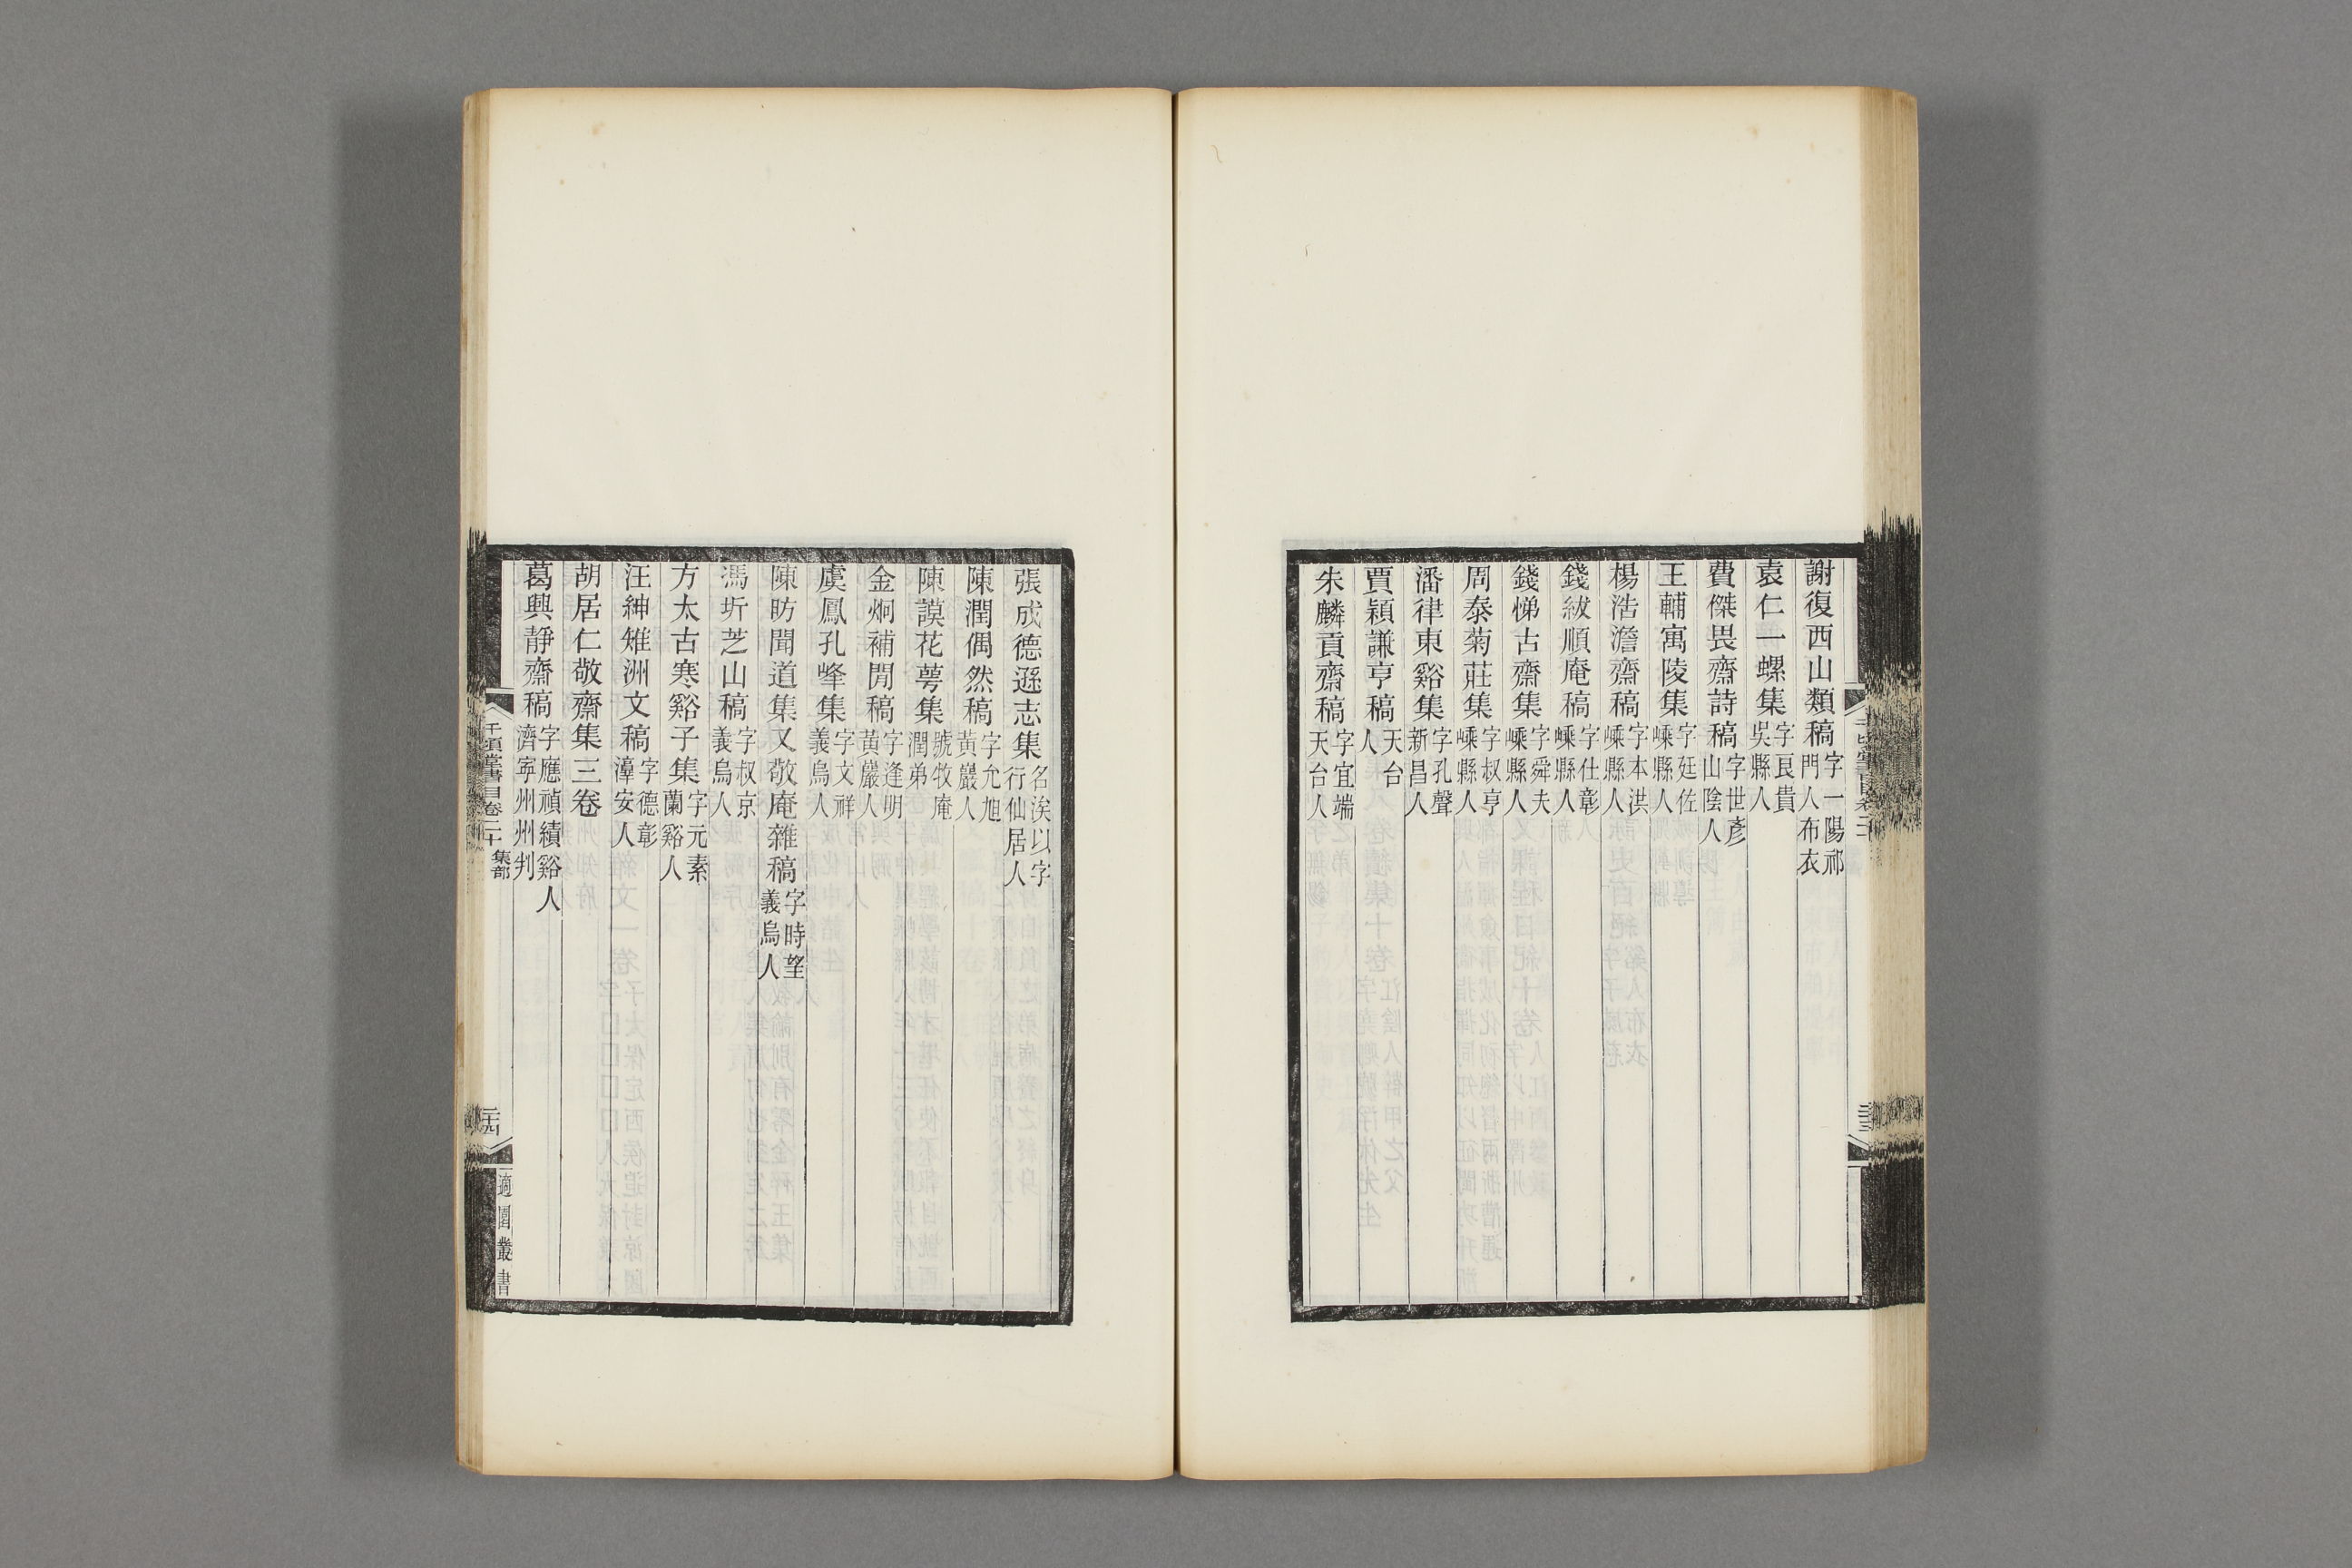 謝復西山類稿字一陽祁門人布衣
袁仁一螺集字良貴吳縣人
費傑畏齋詩稿字世彥山陰人
王輔寓陵集字廷佐嵊縣人
楊浩澹齋稿字本洪嵊縣人
錢紱順庵稿字仕彰嵊縣人
錢悌古齋集字舜夫嵊縣人
周泰菊莊集字叔亨嵊縣人
潘律東谿集字孔聲新昌人
賈穎謙亨稿天台人
朱麟貢齋稿字宜端天台人
張成德遜志集名涘以字行仙居人
陳潤偶然稿字允旭黃巖人
陳謨花萼集號牧庵潤弟
金炯補閒稿字逢明黃巖人
虞鳳孔峰集字文祥義烏人
陳昉聞道集又敬庵雜稿字時瑩義烏人
馮圻芝山稿字叔京義烏人
方太古寒谿子集字元素蘭谿人
汪紳雉洲文稿字德彰漳安人
胡居仁敬齋集三卷
葛興靜齋稿字應禎績谿人濟寧州州判
千頃堂書目卷二十 集部
二十四
適園叢書